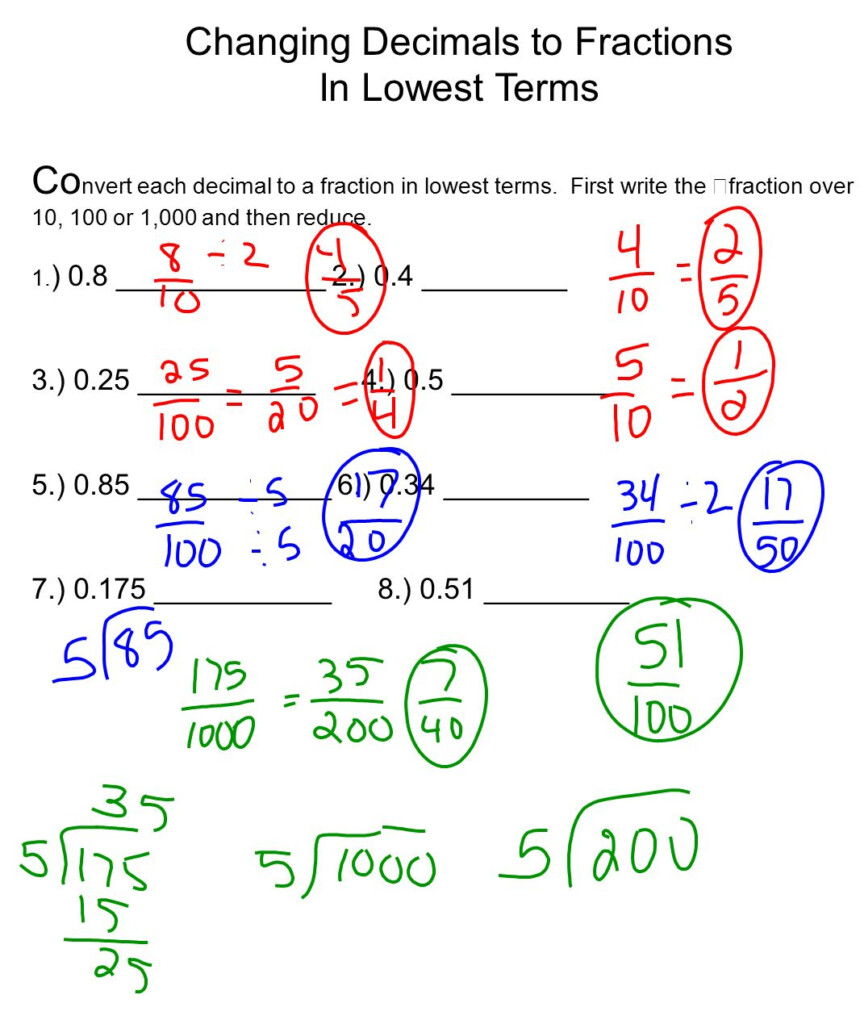 Changing Decimals to Fractions
In Lowest Terms
Convert each decimal to a fraction in lowest terms. First write the □fraction over
10, 100 or 1,000 and then reduce.
1.) 0.8 ____ 8/10 ÷ 2 4/5 2.) 0.4 ____ 4/10 = 2/5
3.) 0.25 ____ 25/100 = 5/20 = 1/4 4.) 0.5 ____ 5/10 = 1/2
5.) 0.85 ____ 85/100 ÷5 ÷5 17/20 6.) 0.34 ____ 34/100 ÷2 17/50
7.) 0.175 ____ 8.) 0.51 ____
5)85 175/1000 = 35/200 7/40 51/100
35
5)175 5)1000 5)200
15
25